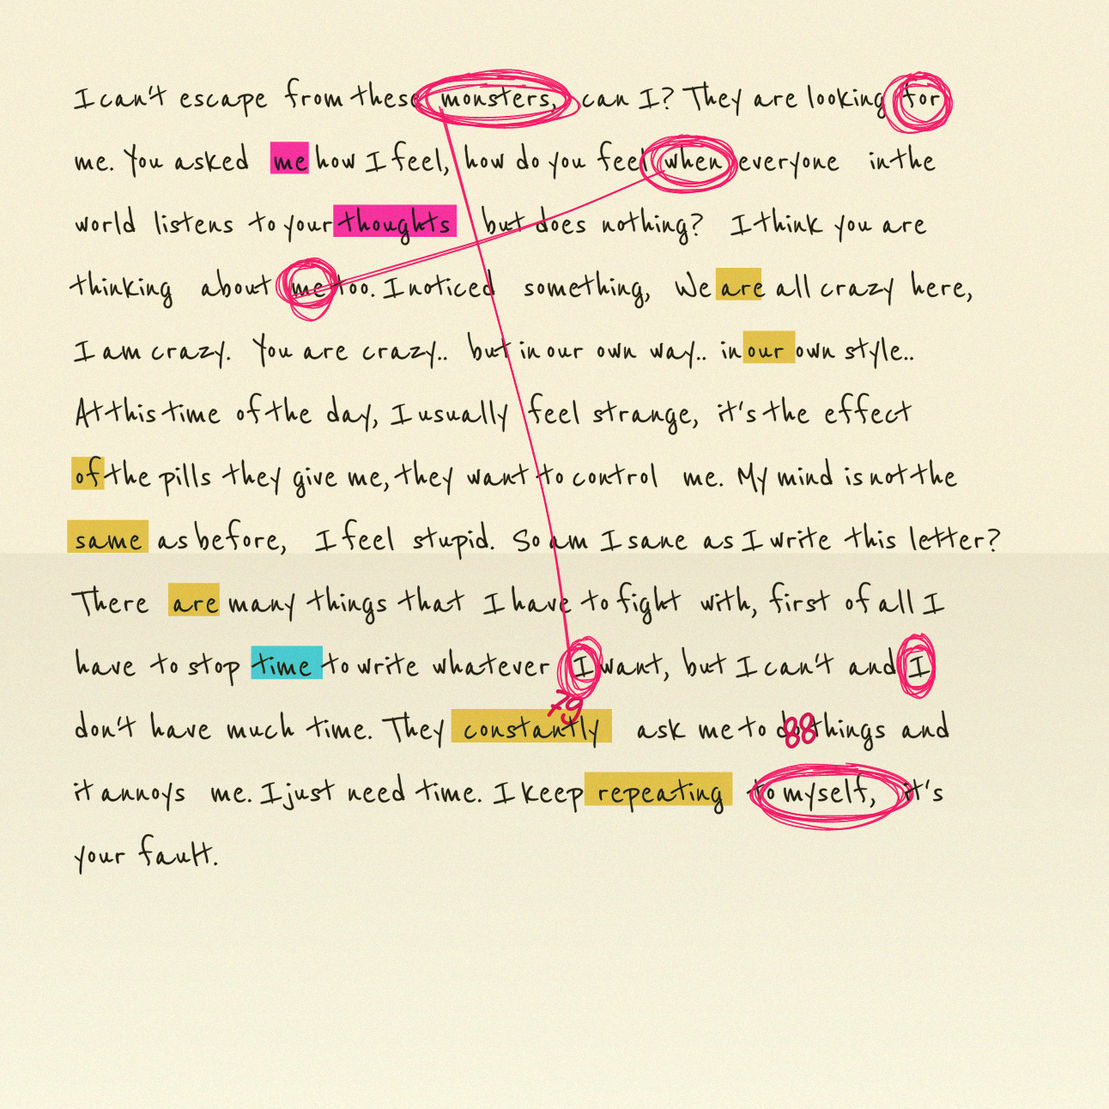 I can't escape from these monsters, can I? They are looking for
me. You asked me how I feel, how do you feel when everyone in the
world listens to your thoughts but does nothing? I think you are
thinking about me too. I noticed something, We are all crazy here,
I am crazy. You are crazy.. but in our own way.. in our own style..
At this time of the day, I usually feel strange, it's the effect
of the pills they give me, they want to control me. My mind is not the
same as before, I feel stupid. So am I sane as I write this letter?
There are many things that I have to fight with, first of all I
have to stop time to write whatever I want, but I can't and I
79 88
don't have much time. They constantly ask me to do things and
it annoys me. I just need time. I keep repeating to myself, it's
your fault.